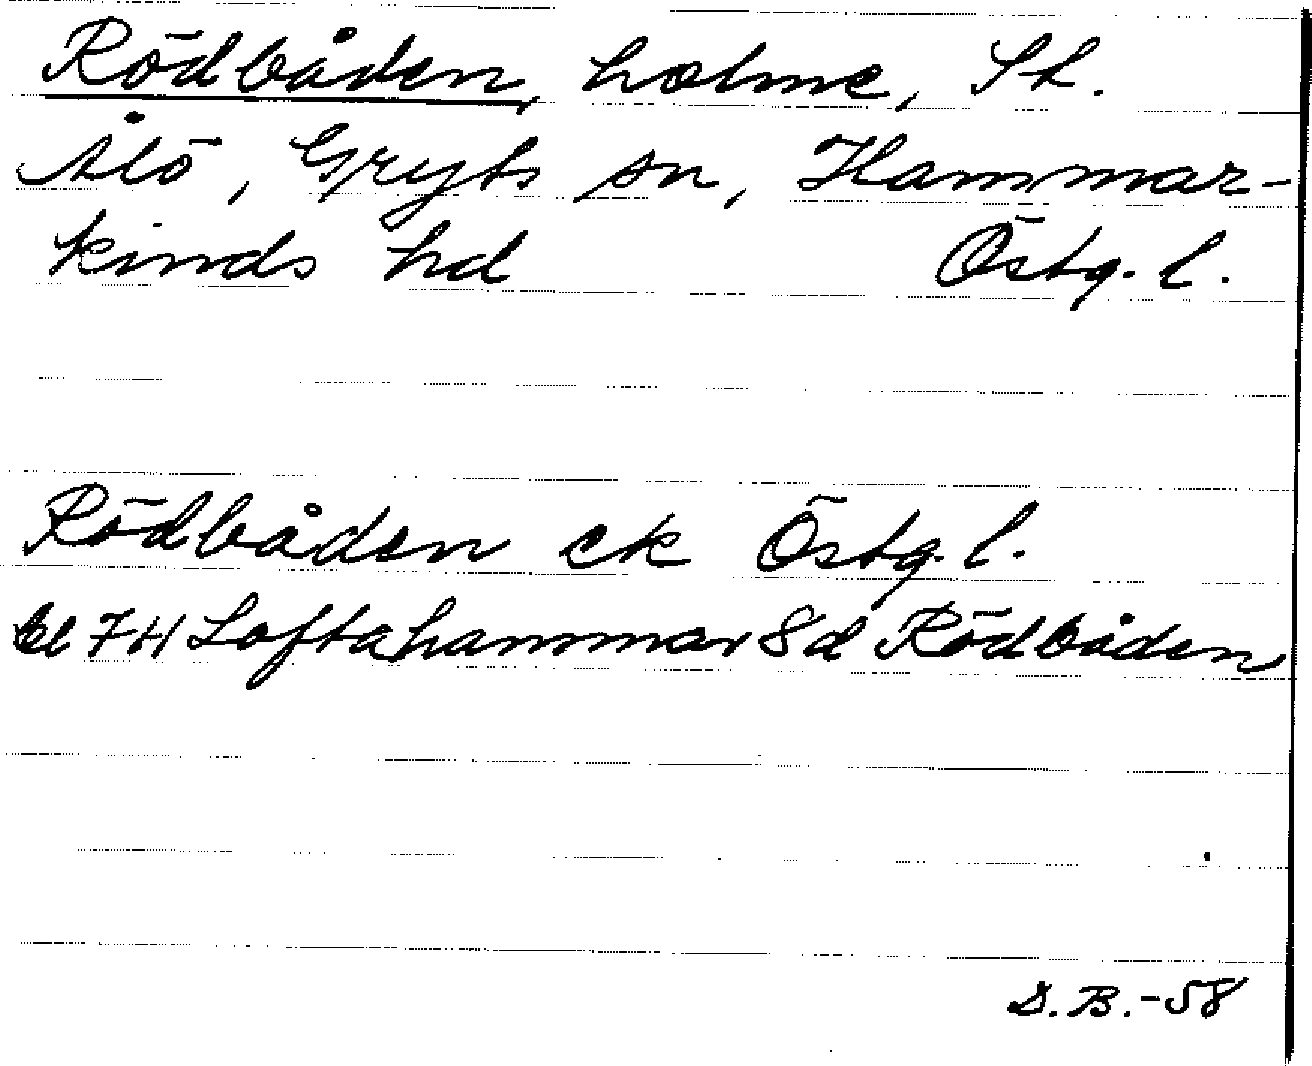 Rödbåden, holme, St.
Ålö, Gryts sn, Hammar-
kinds hd Östg. l.
Rödbåden ek Östg. l.
bl 7H Loftahammar 8d Rödbåden
D.B.-58